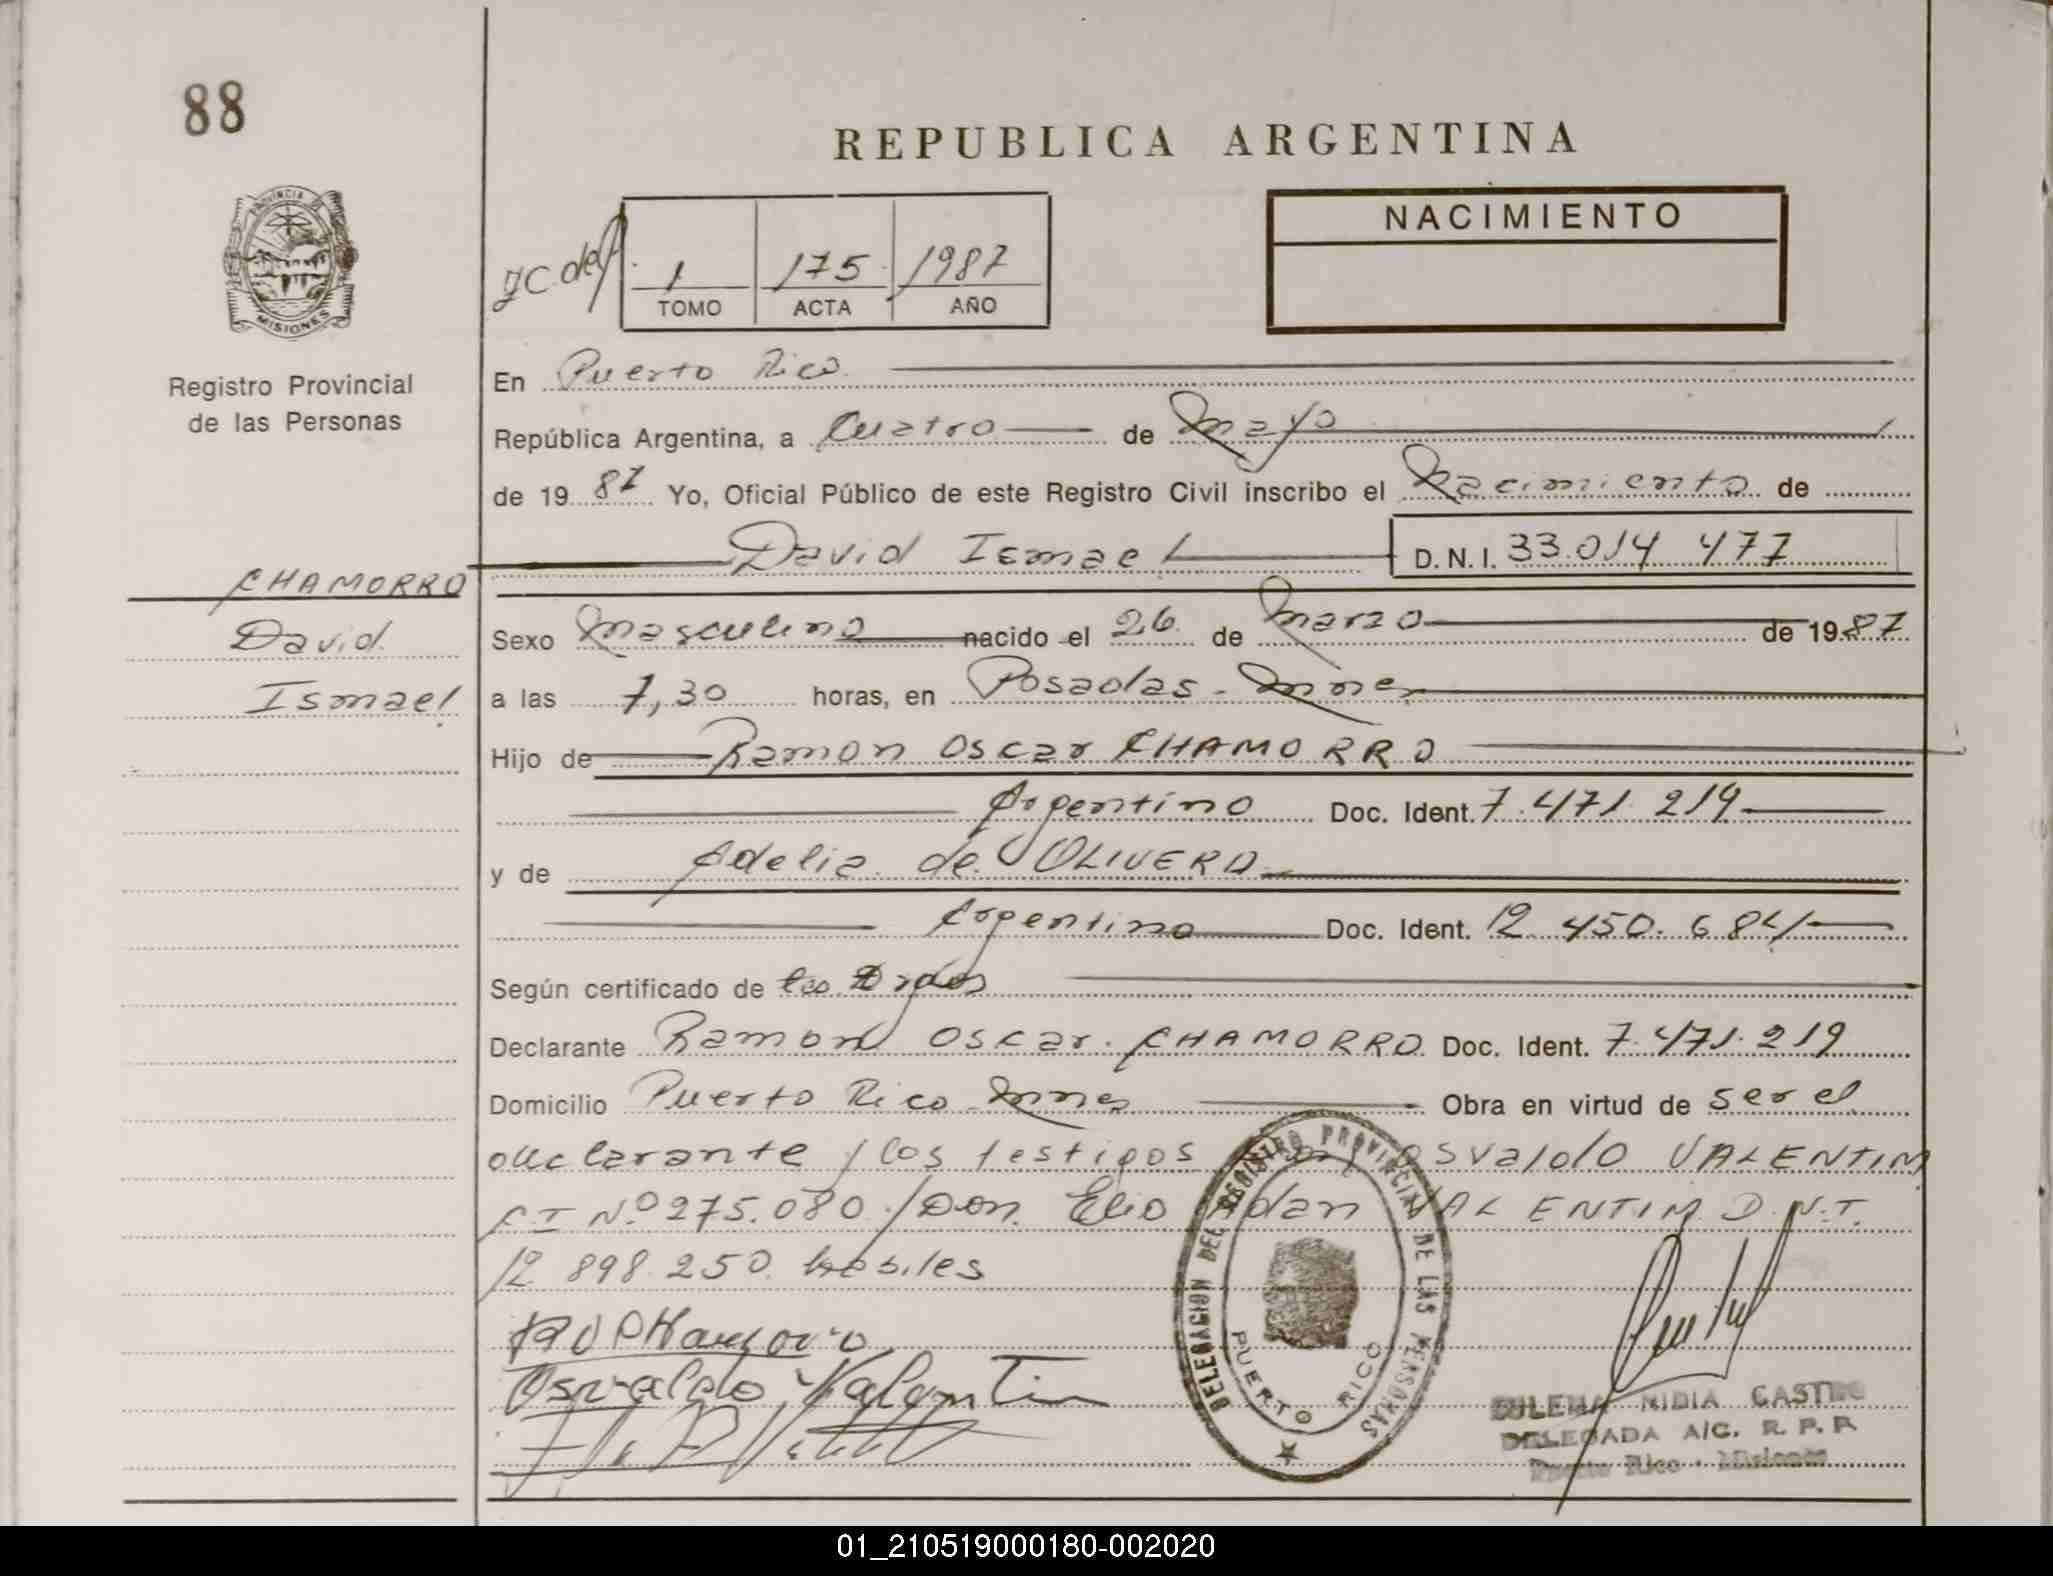 88
REPUBLICA ARGENTINA
PROVINCIA DE
MISIONES
Registro Provincial
de las Personas
1 175 1987
TOMO ACTA AÑO
NACIMIENTO
En Puerto Rico
República Argentina, a Cuatro de Mayo
de 19 87 Yo, Oficial Público de este Registro Civil inscribo el Nacimiento de
David Ismael D.N.I. 33.014 477
CHAMORRO
David
Ismael
Sexo Masculino nacido el 26 de Marzo de 19 87
a las 7,30 horas, en Posadas - Mnes
Hijo de Ramon Oscar CHAMORRO
Argentino Doc. Ident. 7.471.219
y de Adelia de OLIVERA
Argentina Doc. Ident. 12.450.684
Según certificado de
Declarante Ramon Oscar CHAMORRO Doc. Ident. 7.471.219
Domicilio Puerto Rico Mnes Obra en virtud de ser el
declarante y los testigos Osvaldo VALENTIM
CI Nº 275.080 y Don. Elio Adan VALENTIM D.N.I.
12.898.250. habiles
Osvaldo Valentin
DELEGACION DEL REGISTRO PROVINCIAL DE LAS PERSONAS
PUERTO RICO
ZULEMA NIDIA CASTRO
DELEGADA A/C. R. P. P.
Puerto Rico - Misiones
01_210519000180-002020